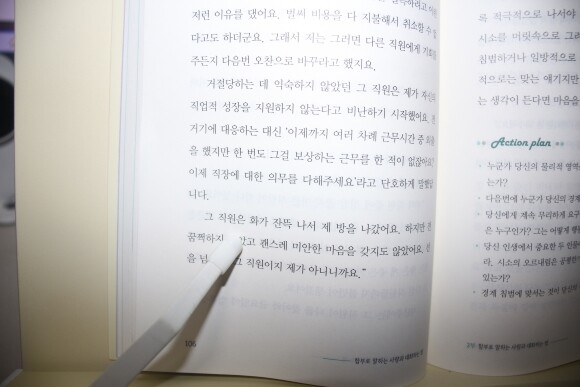 저런 이유를 댔어요. 벌써 비용을 다 지불해서 취소할 수
다고도 하더군요. 그래서 저는 그러면 다른 직원에게 기회를
주든지 다음번 오찬으로 바꾸라고 했지요.
거절당하는 데 익숙하지 않았던 그 직원은 제가 자신의
직업적 성장을 지원하지 않는다고 비난하기 시작했어요.
거기에 대응하는 대신 '이제까지 여러 차례 근무시간 중 외출
을 했지만 한 번도 그걸 보상하는 근무를 한 적이 없잖아요?
이제 직장에 대한 의무를 다해주세요'라고 단호하게 말했답
니다.
그 직원은 화가 잔뜩 나서 제 방을 나갔어요. 하지만 전
꿈쩍하지 않고 괜스레 미안한 마음을 갖지도 않았어요. 선
을 넘 그 직원이지 제가 아니니까요."
함부로 말하는 사람과 대화하는 법
록 적극적으로 나서야
시소를 머릿속으로 그려
침범하거나 일방적으로
적으로는 맞는 얘기지만
는 생각이 든다면 마음을
Action plan
• 누군가 당신의 물리적 영역
는가?
• 다음번에 누군가 당신의 경계
• 당신에게 계속 무리하게 요구
은 누구인가? 그는 어떻게 행
• 당신 인생에서 중요한 두 인물
라. 시소의 오르내림은 공평한
있는가?
• 경계 침범에 맞서는 것이 당신